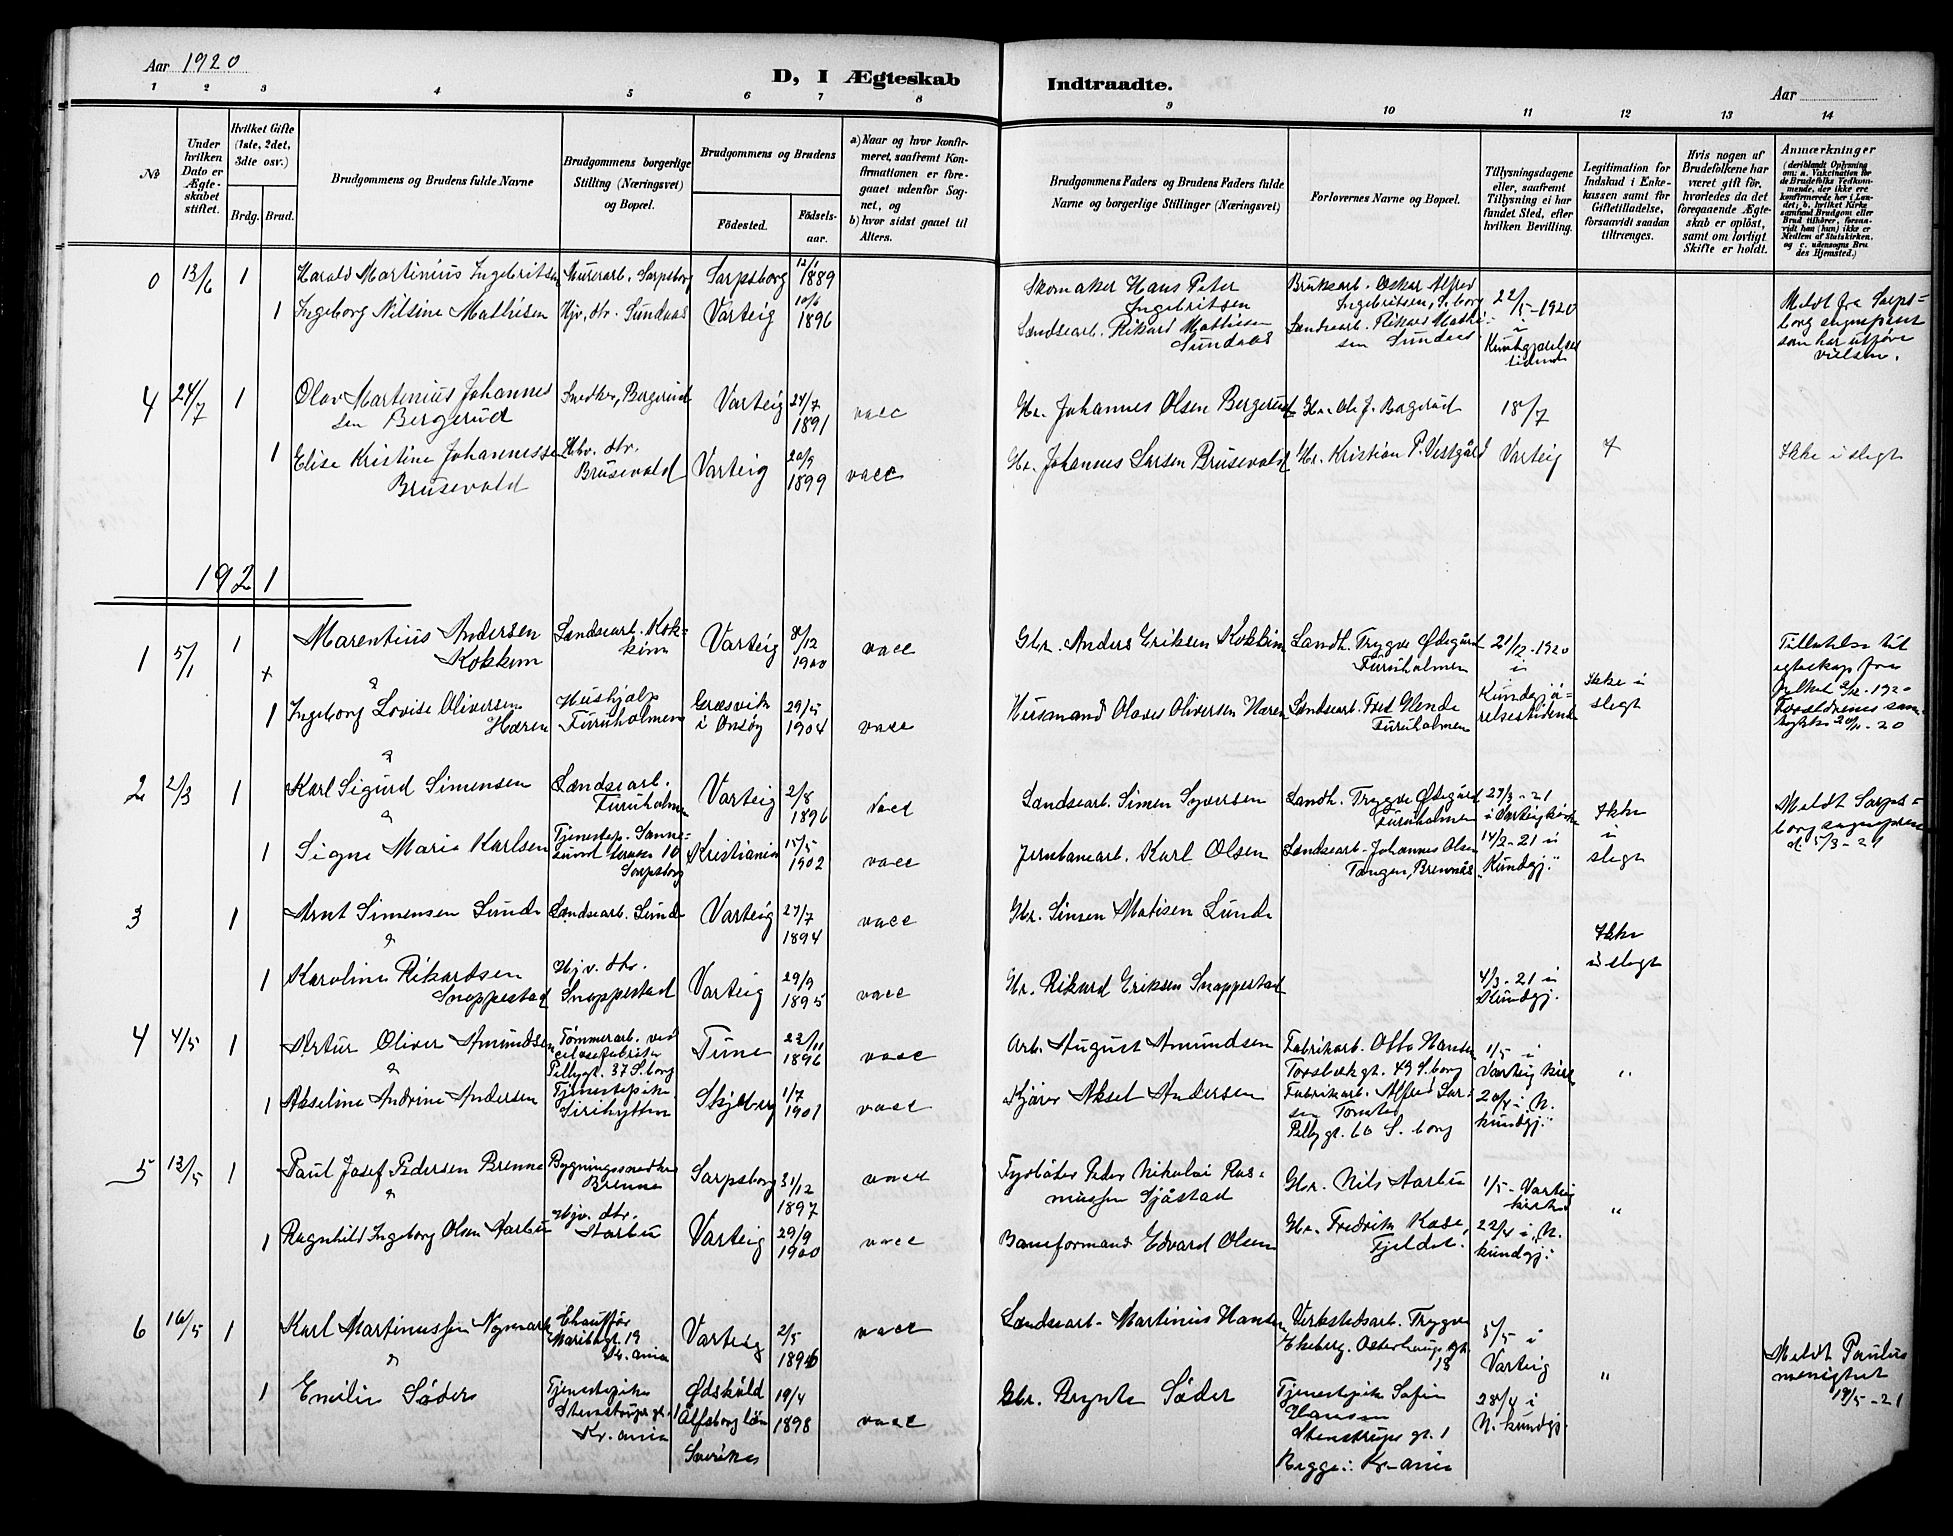 Aar 1920
D, I Ægteskab
Indtraadte.
Aar
1 2 3 4 5 6 7 8 9 10 11 12 13 14
No
Under hvilken Dato er Ægteskabet stiftet.
Hvilket Gifte (1ste, 2det, 3die osv.)
Brdg. Brud.
Brudgommens og Brudens fulde Navne
Brudgommens borgerlige Stilling (Næringsvei) og Bopæl.
Brudgommens og Brudens
Fødested.
Fødsels-aar.
a) Naar og hvor konfirmeret, saafremt Konfirmationen er foregaaet udenfor Sognet, og
b) hvor sidst gaaet til Alters.
Brudgommens Faders og Brudens Faders fulde Navne og borgerlige Stillinger (Næringsvei)
Forlovernes Navne og Bopæl.
Tillysningsdagene eller, saafremt Tillysning ei har fundet Sted, efter hvilken Bevilling.
Legitimation for Indskud i Enkekassen samt for Giftetilladelse, forsaavidt saadan tiltrænges.
Hvis nogen af Brudefolkene har været gift før, hvorledes da det foregaaende Ægteskab er opløst, samt om lovligt Skifte er holdt.
Anmærkninger
(deriblandt Oplysning om: a. Vakcination for de Brudefolks Vedkommende, der ikke ere konfirmerede her i Landet; b. hvilket Kirkesamfund Brudgom eller Brud tilhører, forsaavidt han (hun) ikke er Medlem af Statskirken, og c. udensogns Brudes Hjemsted.)
0 13/6 1 Harald Martinius Ingebritsen Murerarb. Sarpsborg Sarpsborg 12/1 1889
Skomaker Hans Peter Ingebritsen
Bruksarb. Oskar Alfred Ingebritsen, S.borg
22/5-1920 i Kundgjørelsestidende
Meldt fra Sarpsborg sogneprest som har utført vielsen.
1 Ingeborg Nilsine Mathisen Hjv. dtr. Sundaas Varteig 10/6 1896
Landsearb. Rikard Mathisen Sundaas
Landsearb. Rikard Mathisen Sundaas
4 24/7 1 Olav Martinius Johannessen Bergerud Snedker, Bergerud Varteig 24/7 1891 vacc
Gbr. Johannes Olsen Bergerud Gbr. Ole J. Bergerud 18/7
1 Elise Kristine Johannessen Brusevold Hbv. dtr. Brusevold Varteig 20/9 1899 vacc
Gbr. Johannes Larsen Brusevold Gbr. Kristian P. Vestgård Varteig
Ikke i slegt
1921
1 5/1 1 Marentius Andersen Kokkim Landsearb. Kokkim Varteig 8/12 1900 vacc
&
Gbr. Anders Eriksen Kokkim Landh. Trygve Ødegård Furuholmen 21/12-1920 i Kundgjørelsestidende
Ikke i slegt
Tillatelse til egteskap fra fylket 9/12-1920
1 Ingeborg Lovise Oliversen Hæren Hushjælp Furuholmen Græsvik i Onsøy 29/5 1904 vacc
Husmand Olaves Oliversen Hæren Landsearb. Fred Hende Furuholmen
2 2/3 1 Karl Sigurd Simensen Landsearb. Furuholmen Varteig 2/8 1896 vacc
&
Landsearb. Simen Syversen Landh. Trygve Ødegård Furuholmen 27/2-21 i Varteig kirke
Ikke i slegt
Meldt Sarpsborg sogneprest d. 5/3-21
1 Signe Marie Karlsen Tjenestep. Sannesund Sarpsborg Kristiania 15/5 1902 vacc
Jernbanearb. Karl Olsen Landsearb. Johannes Olsen Tangen, Brennås 14/2-21 i Kundgj.
3 1 Arnt Simensen Lunde Landsearb. Lunde Varteig 27/7 1894 vacc
&
Gbr. Simen Matisen Lunde
Ikke i slegt
1 Karoline Rikardsen Snoppestad Hjv. dtr. Snoppestad Varteig 29/9 1895 vacc
Gbr. Rikard Eriksen Snoppestad 4/3-21 i Kundgj.
4 4/5 1 Artur Oliver Amundsen Tømmerarb. ved Pellygt. 37 S.borg Tune 22/11 1896 vacc
&
Arb. August Amundsen Fabrikarb. Otto Hansen Torsbækgt. 49 S.borg 1/5 i Varteig kirke "
1 Akseline Andrine Andersen Tjenestepike Sirihytten Skjeberg 1/7 1901 vacc
Kjører Aksel Andersen Fabrikarb. Alfred Larsen Tomter Pellygt. 60 S.borg 20/4 i N. kundgj.
5 13/5 1 Paul Josef Pedersen Brenne Bygningssnedker Brenne Sarpsborg 31/12 1897 vacc
&
Fyrbøter Peder Nikolai Rasmussen Sjåstad Gbr. Nils Aarbu 1/5- Varteig kirke "
1 Ragnhild Ingeborg Olsen Aarbu Hjv. dtr. Aarbu Varteig 29/9 1900 vacc
Baneformand Edvard Olsen Gbr. Fredrik Kase, Fjeldet. 22/4 i N. kundgj.
6 16/5 1 Karl Martinussen Nymark Chauffør Maribogt. 19 Kr.ania Varteig 2/5 1896 vacc
&
Landsearb. Martinius Hansen Verkstedsarb. Trygve Ekeberg. Osterhausgt. 13 5/5 i Varteig "
Meldt Paulus menighet 19/5-21
1 Emilie Söder Tjenestepike Stenstrupsgt. 1 Kr.ania Ødskøld Älfsborg län Sverike 19/4 1898 vacc
Gbr. Brynte Söder Tjenestepike Sofie Hansen Stenstrupsgt. 1 28/4 i N. kundgj.
Begge: Kr-ania